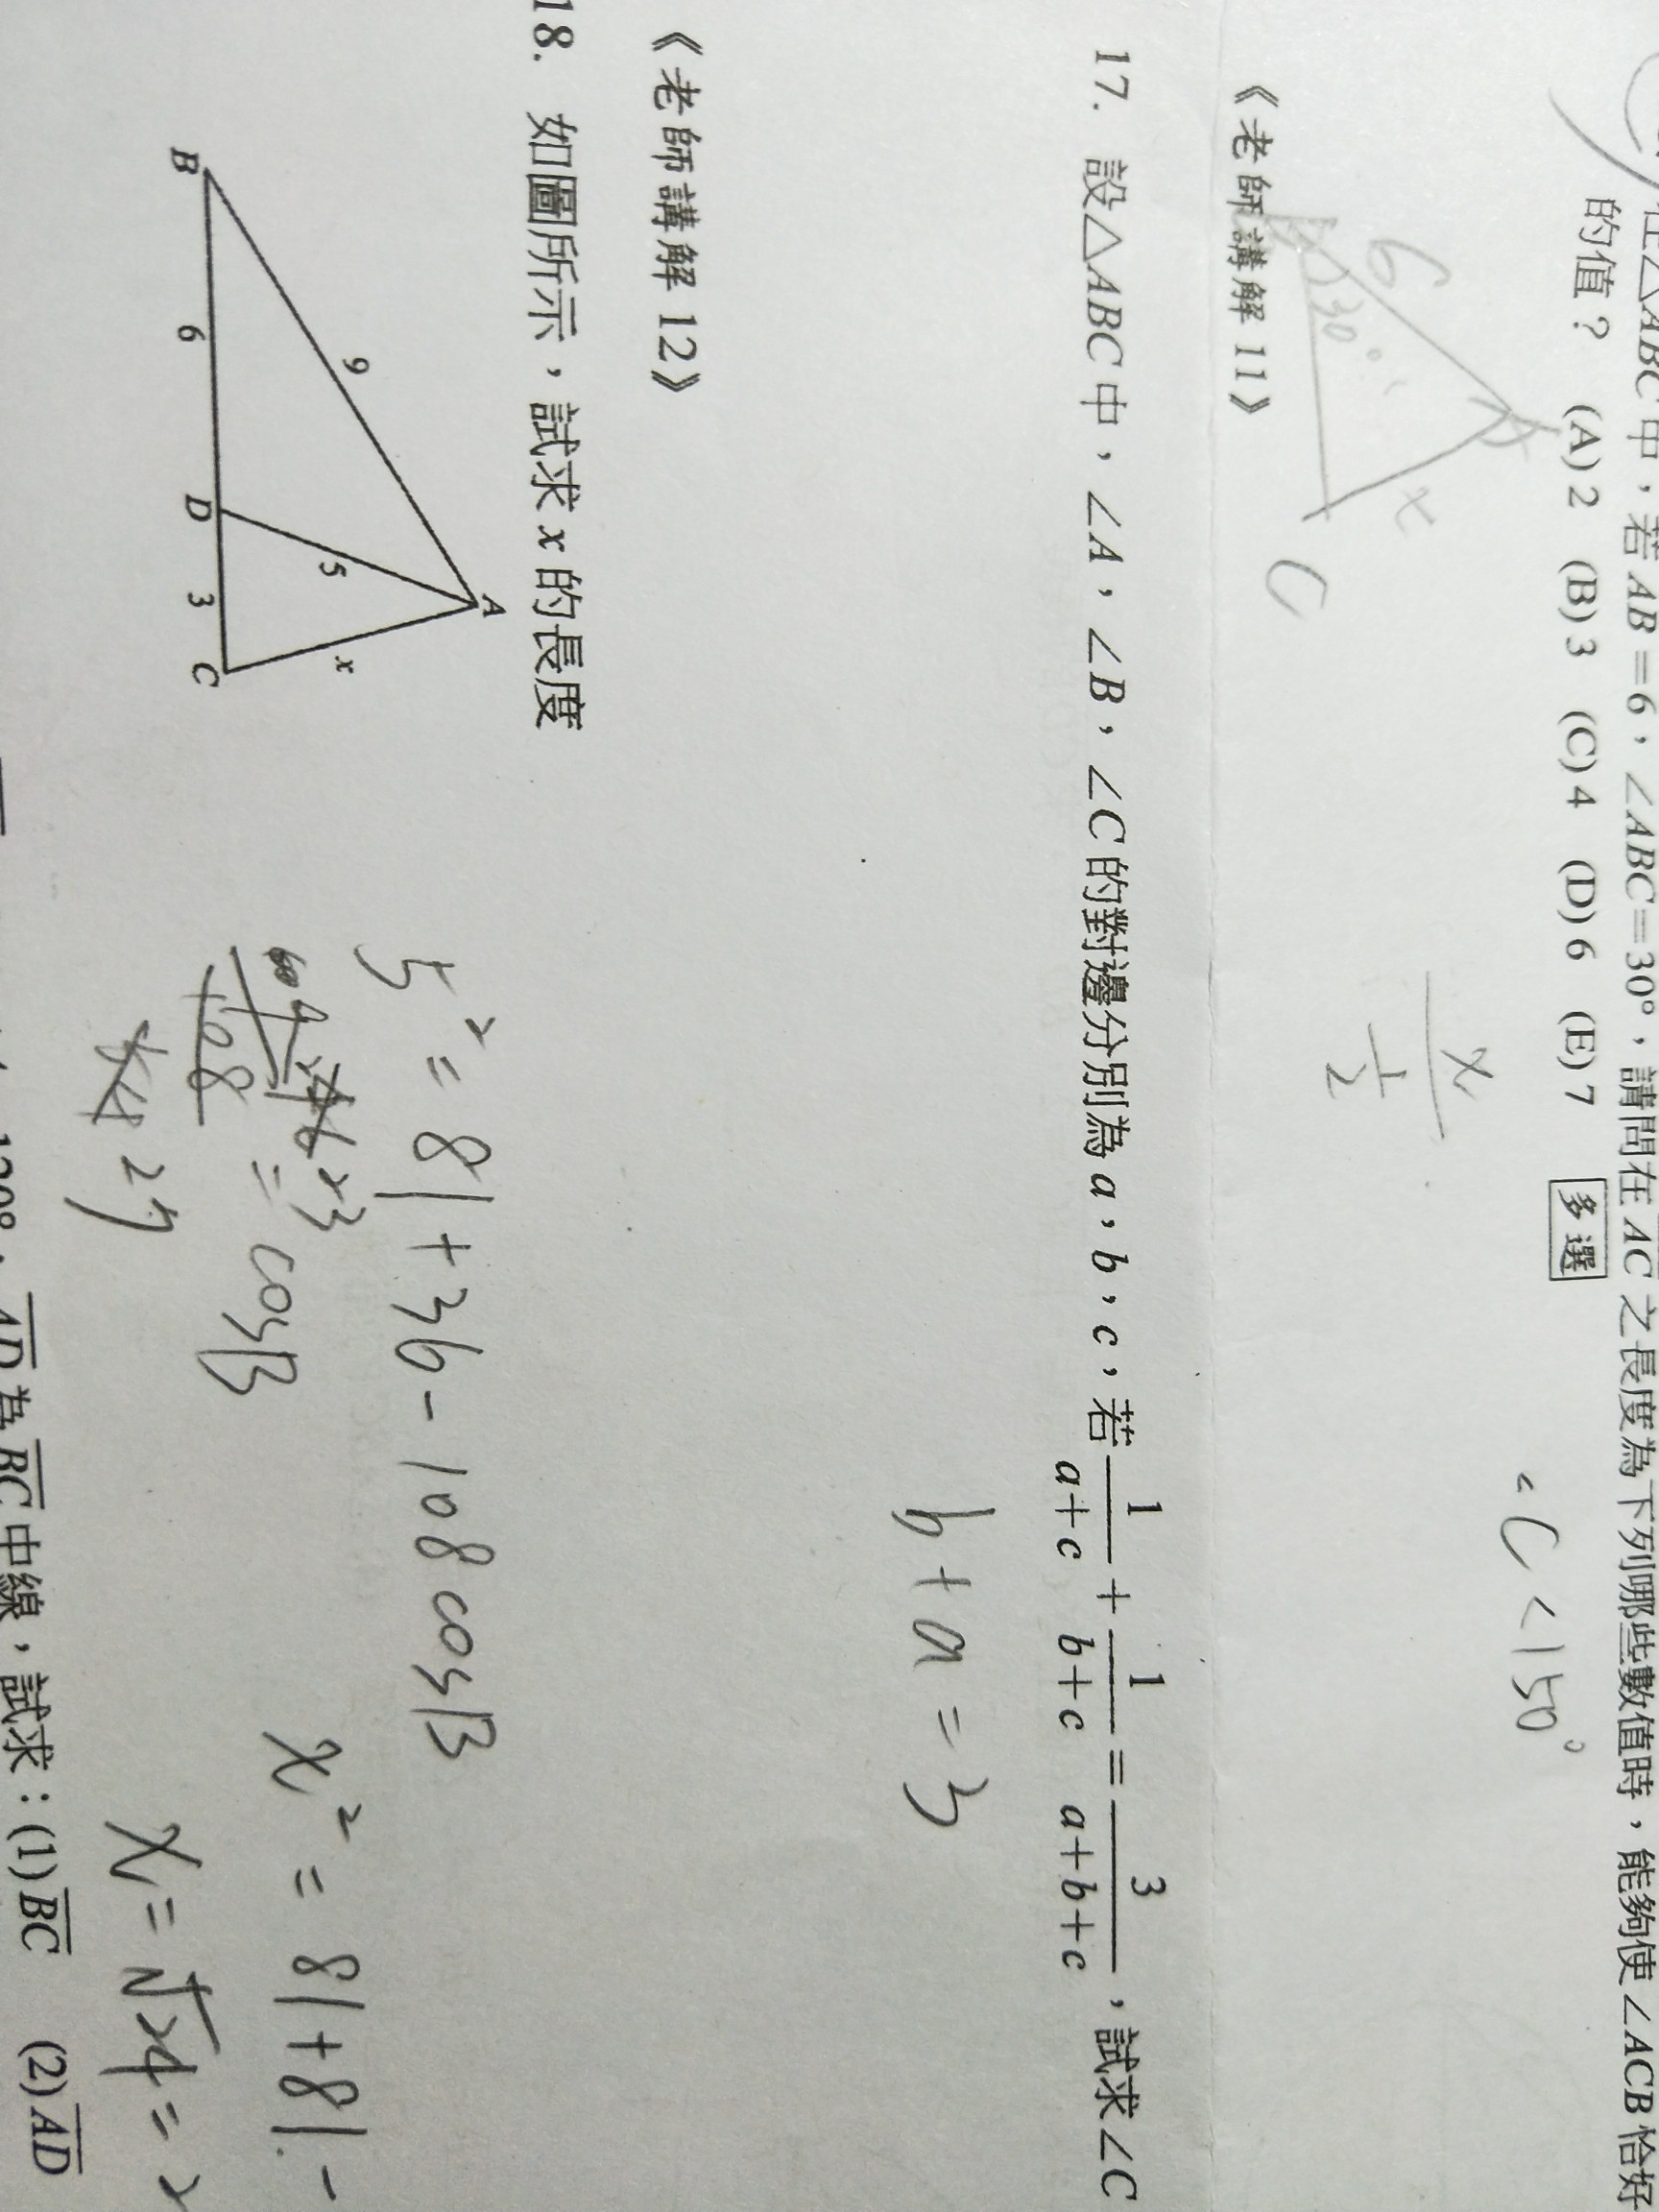 在△ABC中，若 AB＝6，∠ABC＝30°，請問在 AC 之長度為下列哪些數值時，能夠使∠ACB恰好
的值？ (A) 2 (B) 3 (C) 4 (D) 6 (E) 7 多選
<C<150°
6
30°
x
C
x
1/2
《老師講解 11》
17. 設△ABC中，∠A，∠B，∠C的對邊分別為a，b，c，若 1/(a+c) + 1/(b+c) = 3/(a+b+c)，試求∠C
b+a=3
《老師講解 12》
18. 如圖所示，試求 x 的長度
A
9
5
x
B
6
D
3
C
5²=81+36-108cosB
=cosB
108
27
x²=81+81-
x=√24=2
120°，AD為BC中線，試求：(1)BC (2)AD